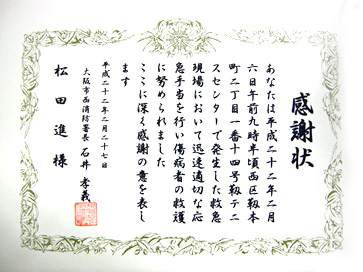 感謝状
あなたは平成二十二年二月
六日午前九時半頃西区靱本
町二丁目一番十四号靱テニ
スセンターで発生した救急
現場において迅速適切な応
急手当を行い傷病者の救護
に努められました
ここに深く感謝の意を表し
ます
平成二十二年二月二十七日
大阪市西消防署長 石井孝義
松田進様